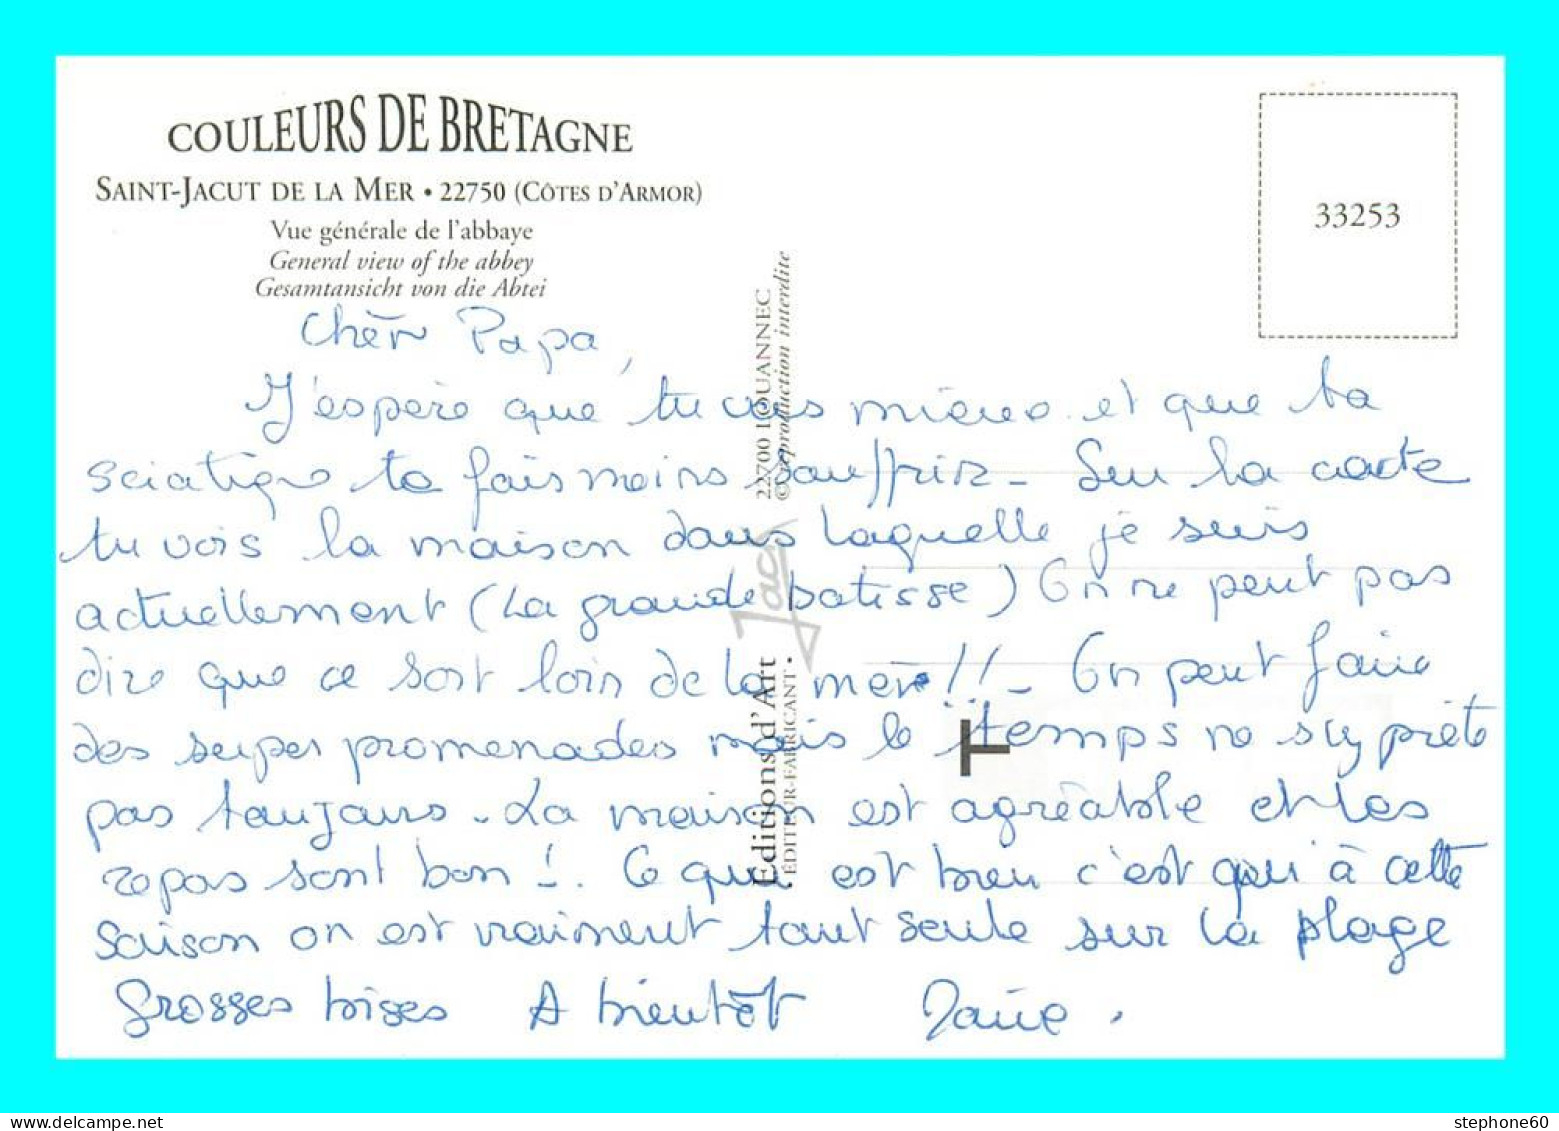 COULEURS DE BRETAGNE
SAINT-JACUT DE LA MER • 22750 (CÔTES D'ARMOR)
Vue générale de l'abbaye
General view of the abbey
Gesamtansicht von die Abtei
33253
Chèr Papa,
J'espère que tu vas mieux et que ta
sciatique te fais moins souffrir - Sur la carte
tu vois la maison dans laquelle je suis
actuellement (La grande batisse) On ne peut pas
dire que ce soit loin de la mer!! - On peut faire
des super promenades mais le temps ne s'y prête
pas toujours - La maison est agréable et les
repas sont bon!. Ce qui est bien c'est qu'à cette
saison on est vraiment tout seule sur la plage
Grosses bises A bientôt
Editions d'Art Jac
ÉDITEUR-FABRICANT •
22700 LOUANNEC
© reproduction interdite
stephone60